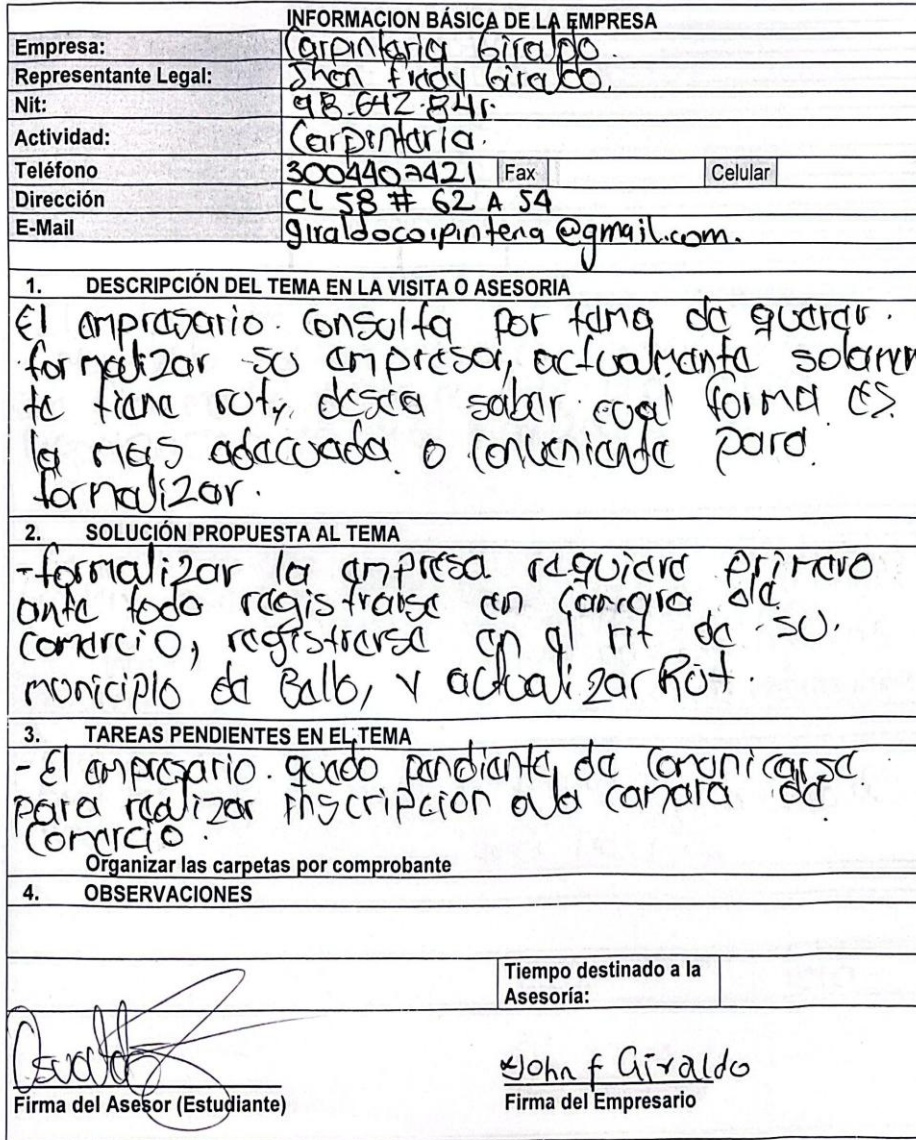 INFORMACION BÁSICA DE LA EMPRESA
Empresa: Carpintería Giraldo.
Representante Legal: Jhon Fredy Giraldo.
Nit: 98.642.841.
Actividad: Carpintería.
Teléfono 3004407421 Fax Celular
Dirección CL 58 # 62 A 54
E-Mail giraldocarpinteria@gmail.com.
1. DESCRIPCIÓN DEL TEMA EN LA VISITA O ASESORIA
El empresario consulta por tema de querer
formalizar su empresa, actualmente solamen
te tiene rut, desea saber cual forma es
la mas adecuada o conveniente para
formalizar.
2. SOLUCIÓN PROPUESTA AL TEMA
-formalizar la empresa requiere primero
ante todo registrarse en camara de
comercio, registrarse en el rit de su
municipio de Bello, y actualizar Rut.
3. TAREAS PENDIENTES EN EL TEMA
- El empresario quedo pendiente de comunicarse
para realizar inscripcion a la camara de
comercio.
Organizar las carpetas por comprobante
4. OBSERVACIONES
Tiempo destinado a la
Asesoría:
Osvaldo John f Giraldo
Firma del Asesor (Estudiante) Firma del Empresario